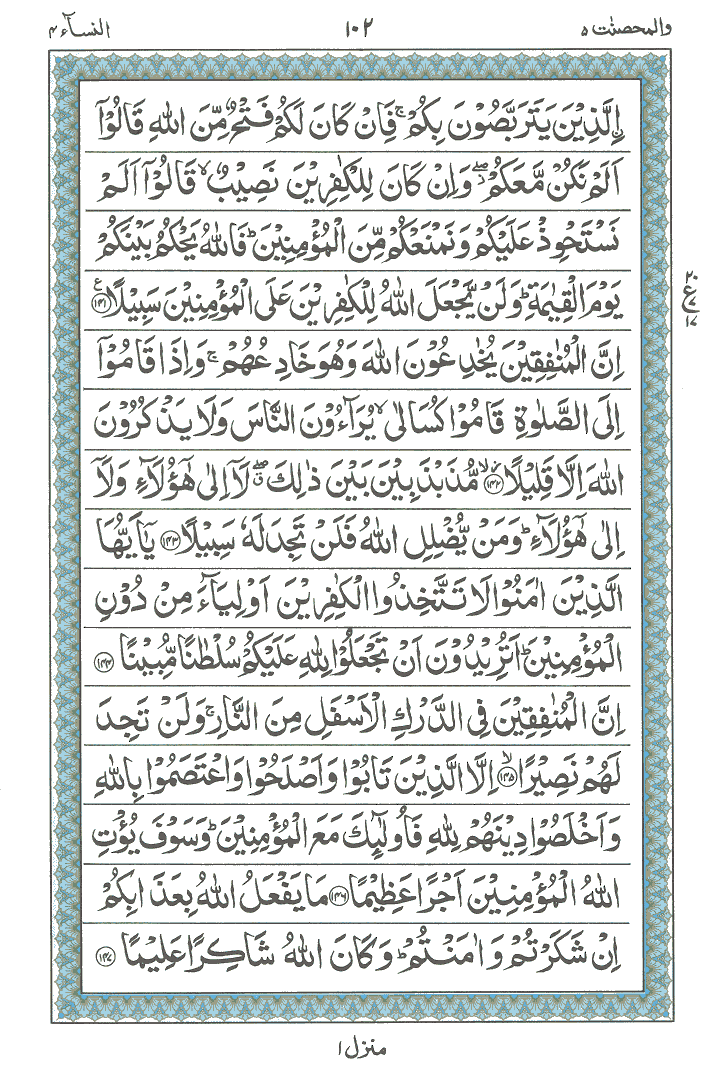 والمحصنٰت ۵ ۱۰۲ النسآء ۴
اِۨلَّذِیْنَ یَتَرَبَّصُوْنَ بِكُمْ ۚ فَاِنْ كَانَ لَكُمْ فَتْحٌ مِّنَ اللّٰهِ قَالُوْۤا
اَلَمْ نَكُنْ مَّعَكُمْ ۖ٘ وَاِنْ كَانَ لِلْكٰفِرِیْنَ نَصِیْبٌ ۙ قَالُوْۤا اَلَمْ
نَسْتَحْوِذْ عَلَیْكُمْ وَنَمْنَعْكُمْ مِّنَ الْمُؤْمِنِیْنَ ؕ فَاللّٰهُ یَحْكُمُ بَیْنَكُمْ
یَوْمَ الْقِیٰمَةِ ؕ وَلَنْ یَّجْعَلَ اللّٰهُ لِلْكٰفِرِیْنَ عَلَی الْمُؤْمِنِیْنَ سَبِیْلًا ۱۴۱ ع
اِنَّ الْمُنٰفِقِیْنَ یُخٰدِعُوْنَ اللّٰهَ وَهُوَ خَادِعُهُمْ ۚ وَاِذَا قَامُوْۤا
اِلَی الصَّلٰوةِ قَامُوْا كُسَالٰی ۙ یُرَآءُوْنَ النَّاسَ وَلَا یَذْكُرُوْنَ
اللّٰهَ اِلَّا قَلِیْلًا ۱۴۲ ۙ مُّذَبْذَبِیْنَ بَیْنَ ذٰلِكَ ۖۗ لَاۤ اِلٰی هٰۤؤُلَآءِ وَلَاۤ
اِلٰی هٰۤؤُلَآءِ ؕ وَمَنْ یُّضْلِلِ اللّٰهُ فَلَنْ تَجِدَ لَهٗ سَبِیْلًا ۱۴۳ یٰۤاَیُّهَا
الَّذِیْنَ اٰمَنُوْا لَا تَتَّخِذُوا الْكٰفِرِیْنَ اَوْلِیَآءَ مِنْ دُوْنِ
الْمُؤْمِنِیْنَ ؕ اَتُرِیْدُوْنَ اَنْ تَجْعَلُوْا لِلّٰهِ عَلَیْكُمْ سُلْطٰنًا مُّبِیْنًا ۱۴۴
اِنَّ الْمُنٰفِقِیْنَ فِی الدَّرْكِ الْاَسْفَلِ مِنَ النَّارِ ۚ وَلَنْ تَجِدَ
لَهُمْ نَصِیْرًا ۱۴۵ ۙ اِلَّا الَّذِیْنَ تَابُوْا وَاَصْلَحُوْا وَاعْتَصَمُوْا بِاللّٰهِ
وَاَخْلَصُوْا دِیْنَهُمْ لِلّٰهِ فَاُولٰٓىِٕكَ مَعَ الْمُؤْمِنِیْنَ ؕ وَسَوْفَ یُؤْتِ
اللّٰهُ الْمُؤْمِنِیْنَ اَجْرًا عَظِیْمًا ۱۴۶ مَا یَفْعَلُ اللّٰهُ بِعَذَابِكُمْ
اِنْ شَكَرْتُمْ وَاٰمَنْتُمْ ؕ وَكَانَ اللّٰهُ شَاكِرًا عَلِیْمًا ۱۴۷
منزل ۱